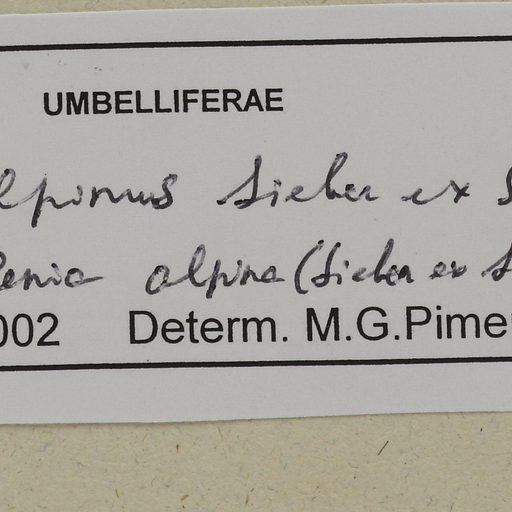 UMBELLIFERAE
lpinus Sieber ex S
enia alpina (Sieber ex S
002 Determ. M.G.Pime